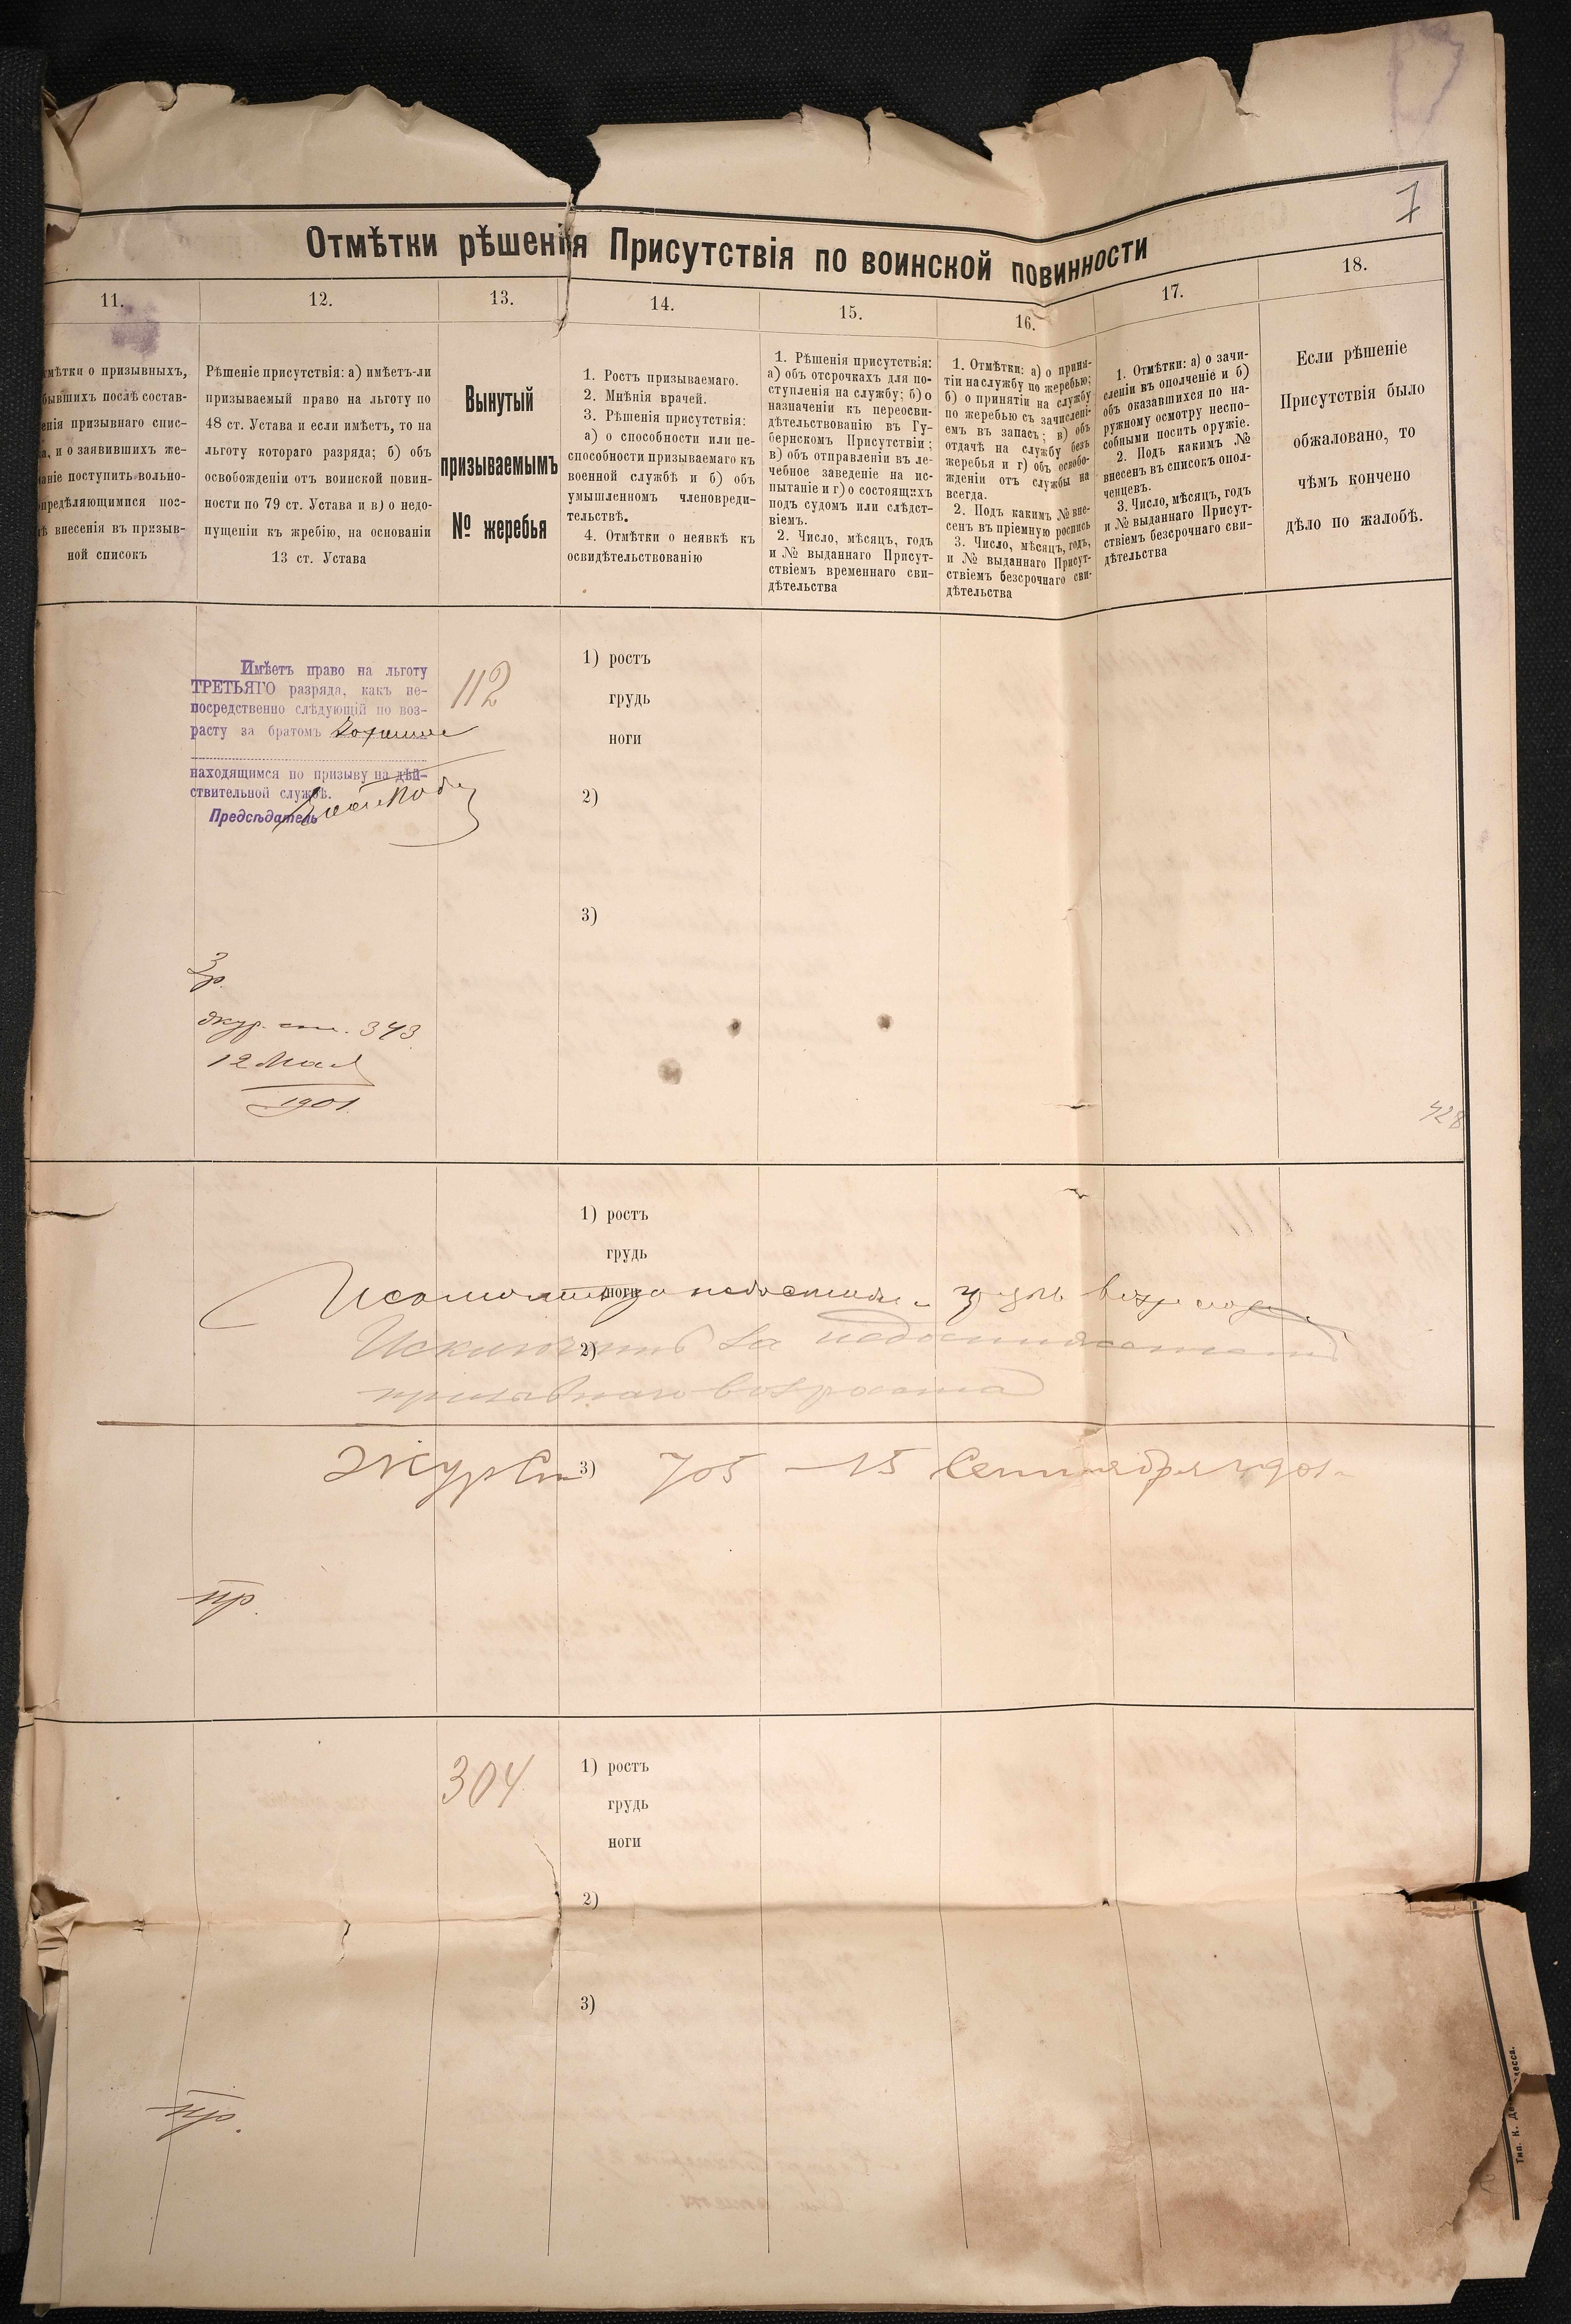 7
Отмѣтки рѣшенія Присутствія по воинской повинности
11.
12.
13.
14.
15.
16.
17.
18.
мѣтки о призывныхъ,
бывшихъ послѣ состав-
енія призывнаго спис-
а, и о заявившихъ же-
аніе поступить вольно-
опредѣляющимися пос-
ѣ внесенія въ призыв-
ной списокъ
Рѣшеніе присутствія: а) имѣетъ-ли
призываемый право на льготу по
48 ст. Устава и если имѣетъ, то на
льготу котораго разряда; б) объ
освобожденіи отъ воинской повин-
ности по 79 ст. Устава и в) о недо-
пущеніи къ жребію, на основаніи
13 ст. Устава
Вынутый
призываемымъ
№ жеребья
1. Ростъ призываемаго.
2. Мнѣнія врачей.
3. Рѣшенія присутствія:
а) о способности или не-
способности призываемаго къ
военной службѣ и б) объ
умышленномъ членовреди-
тельствѣ.
4. Отмѣтки о неявкѣ къ
освидѣтельствованію
1. Рѣшенія присутствія:
а) объ отсрочкахъ для по-
ступленія на службу; б) о
назначеніи къ переосви-
дѣтельствованію въ Гу-
бернскомъ Присутствіи;
в) объ отправленіи въ ле-
чебное заведеніе на ис-
пытаніе и г) о состоящихъ
подъ судомъ или слѣдст-
віемъ.
2. Число, мѣсяцъ, годъ
и № выданнаго Присут-
ствіемъ временнаго сви-
дѣтельства
1. Отмѣтки: а) о приня-
тіи на службу по жеребью;
б) о принятіи на службу
по жеребью съ зачислені-
емъ въ запасъ; в) объ
отдачѣ на службу безъ
жеребья и г) объ освобо-
жденіи отъ службы на
всегда.
2. Подъ какимъ № вне-
сенъ въ пріемную роспись
3. Число, мѣсяцъ, годъ,
и № выданнаго Присут-
ствіемъ безсрочнаго сви-
дѣтельства
1. Отмѣтки: а) о зачи-
сленіи въ ополченіе и б)
объ оказавшихся по на-
ружному осмотру неспо-
собными носить оружіе.
2. Подъ какимъ №
внесенъ въ списокъ опол-
ченцевъ.
3. Число, мѣсяцъ, годъ
и № выданнаго Присут-
ствіемъ безсрочнаго сви-
дѣтельства
Если рѣшеніе
Присутствія было
обжаловано, то
чѣмъ кончено
дѣло по жалобѣ.
Имѣетъ право на льготу
ТРЕТЬЯГО разряда, какъ не-
посредственно слѣдующій по воз-
расту за братомъ
находящимся по призыву на дѣй-
ствительной службѣ.
Предсѣдатель
112
1) ростъ
грудь
ноги
2)
3)
3 р.
жур. ст. 343
12 Мая
1901
428
1) ростъ
грудь
ноги
2)
Исключить за недостиженіемъ
призывнаго возраста
Жур Ст 3) 705 – 15 Сентября 1901
пр.
304
1) ростъ
грудь
ноги
2)
3)
пр.
Тип. Н. Де
десса.